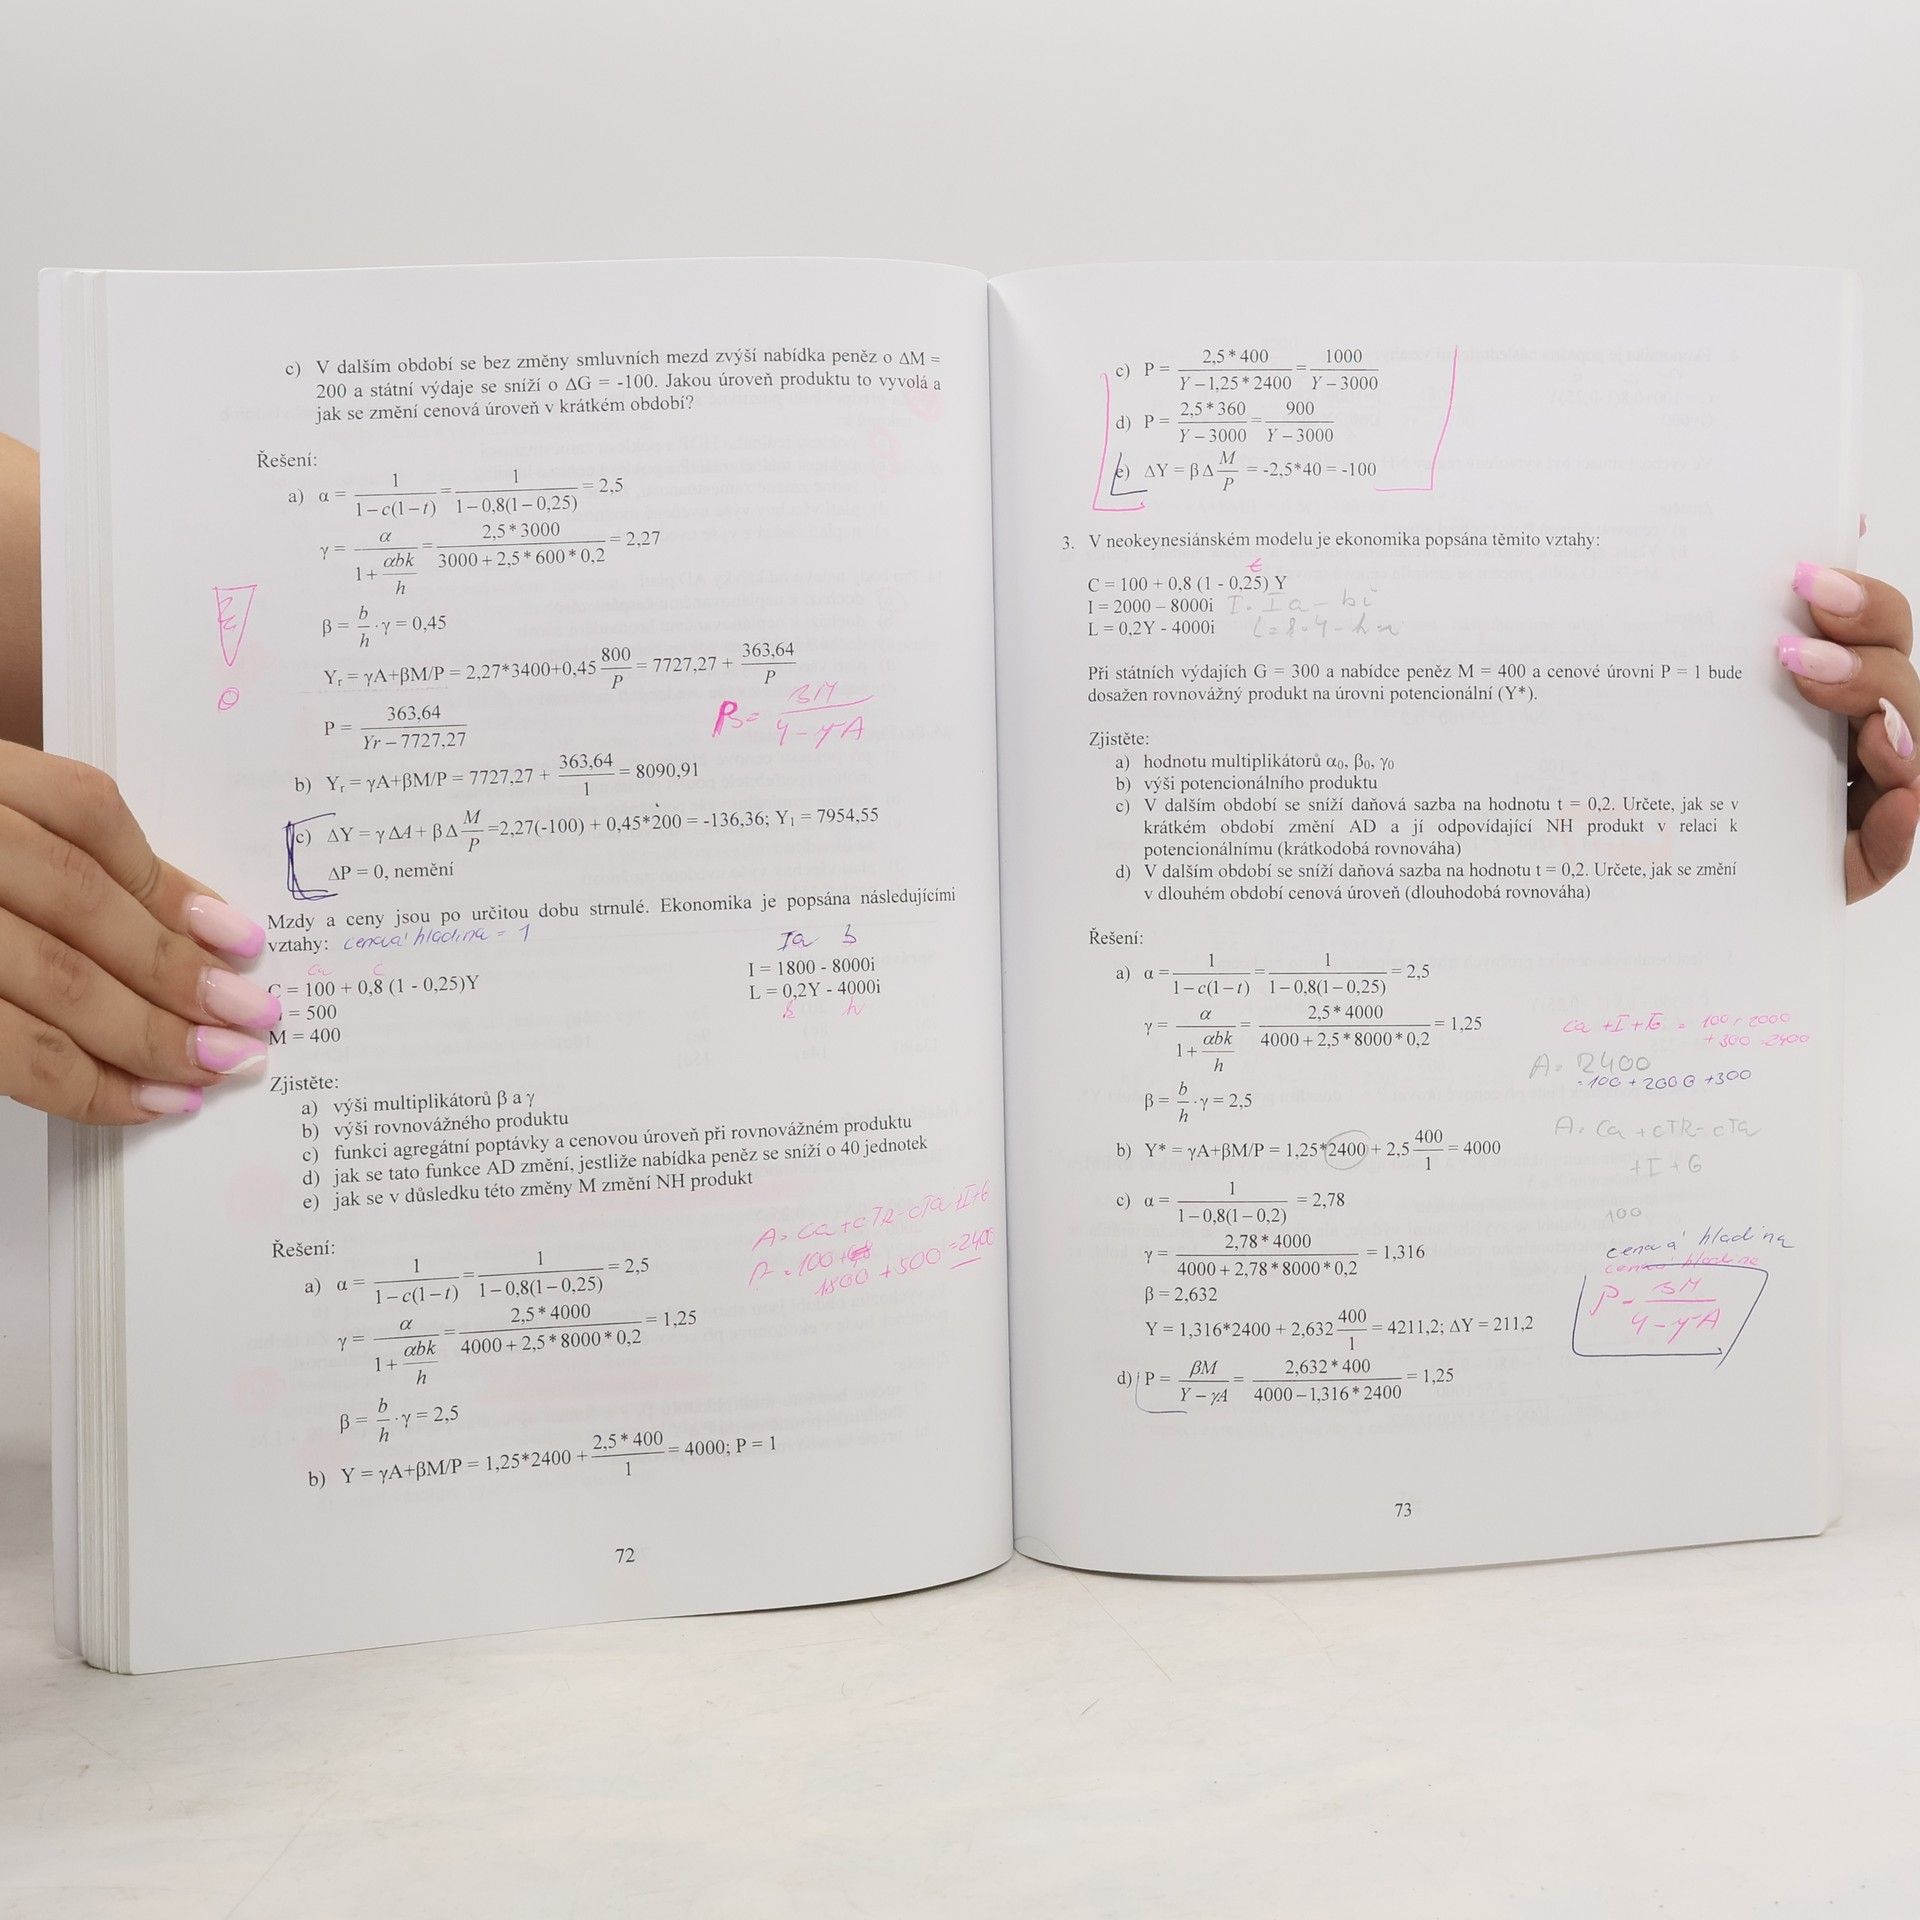 c) V dalším období se bez změny smluvních mezd zvýší nabídka peněz o ΔM =
200 a státní výdaje se sníží o ΔG = -100. Jakou úroveň produktu to vyvolá a
jak se změní cenová úroveň v krátkém období?
Řešení:
a) α = 1/(1−c(1−t)) = 1/(1−0,8(1−0,25)) = 2,5
γ = α/(1+αbk/h) = 2,5*3000/(3000+2,5*600*0,2) = 2,27
β = b/h·γ = 0,45
Yr = γA+βM/P = 2,27*3400+0,45 800/P = 7727,27 + 363,64/P
P = 363,64/(Yr−7727,27)
P = βM/(Y−γA)
b) Yr = γA+βM/P = 7727,27 + 363,64/1 = 8090,91
c) ΔY = γΔA + βΔ M/P =2,27(-100) + 0,45*200 = -136,36; Y1 = 7954,55
ΔP = 0, nemění
Mzdy a ceny jsou po určitou dobu strnulé. Ekonomika je popsána následujícími
vztahy: cenová hladina = 1
Ia b
Ca c
C = 100 + 0,8 (1 - 0,25)Y I = 1800 - 8000i
= 500 L = 0,2Y - 4000i
k h
M = 400
Zjistěte:
a) výši multiplikátorů β a γ
b) výši rovnovážného produktu
c) funkci agregátní poptávky a cenovou úroveň při rovnovážném produktu
d) jak se tato funkce AD změní, jestliže nabídka peněz se sníží o 40 jednotek
e) jak se v důsledku této změny M změní NH produkt
A = Ca + cTR - cTa + I + G
1800 + 500 = 2400
Řešení:
a) α = 1/(1−c(1−t)) = 1/(1−0,8(1−0,25)) = 2,5
γ = α/(1+αbk/h) = 2,5*4000/(4000+2,5*8000*0,2) = 1,25
β = b/h·γ = 2,5
b) Y = γA+βM/P = 1,25*2400 + 2,5*400/1 = 4000; P = 1
72
c) P = 2,5*400/(Y−1,25*2400) = 1000/(Y−3000)
d) P = 2,5*360/(Y−3000) = 900/(Y−3000)
e) ΔY = βΔ M/P = -2,5*40 = -100
3. V neokeynesiánském modelu je ekonomika popsána těmito vztahy:
t
C = 100 + 0,8 (1 - 0,25) Y
I = 2000 – 8000i I = Ia - bi
L = 0,2Y - 4000i
Při státních výdajích G = 300 a nabídce peněz M = 400 a cenové úrovni P = 1 bude
dosažen rovnovážný produkt na úrovni potencionální (Y*).
Zjistěte:
a) hodnotu multiplikátorů α0, β0, γ0
b) výši potencionálního produktu
c) V dalším období se sníží daňová sazba na hodnotu t = 0,2. Určete, jak se v
krátkém období změní AD a jí odpovídající NH produkt v relaci k
potencionálnímu (krátkodobá rovnováha)
d) V dalším období se sníží daňová sazba na hodnotu t = 0,2. Určete, jak se změní
v dlouhém období cenová úroveň (dlouhodobá rovnováha)
Řešení:
a) α = 1/(1−c(1−t)) = 1/(1−0,8(1−0,25)) = 2,5
γ = α/(1+αbk/h) = 2,5*4000/(4000+2,5*8000*0,2) = 1,25
Ca + I + G = 100 + 2000
+ 300 = 2400
A = 2400
= 100 + 2000 + 300
β = b/h·γ = 2,5
A = Ca + cTR - cTa
+ I + G
b) Y* = γA+βM/P = 1,25*2400 + 2,5 400/1 = 4000
c) α = 1/(1−0,8(1−0,2)) = 2,78
100
γ = 2,78*4000/(4000+2,78*8000*0,2) = 1,316
cenová hladina
cenová hladina
β = 2,632
P = βM/(Y−γA)
Y = 1,316*2400 + 2,632 400/1 = 4211,2; ΔY = 211,2
d) P = βM/(Y−γA) = 2,632*400/(4000−1,316*2400) = 1,25
73